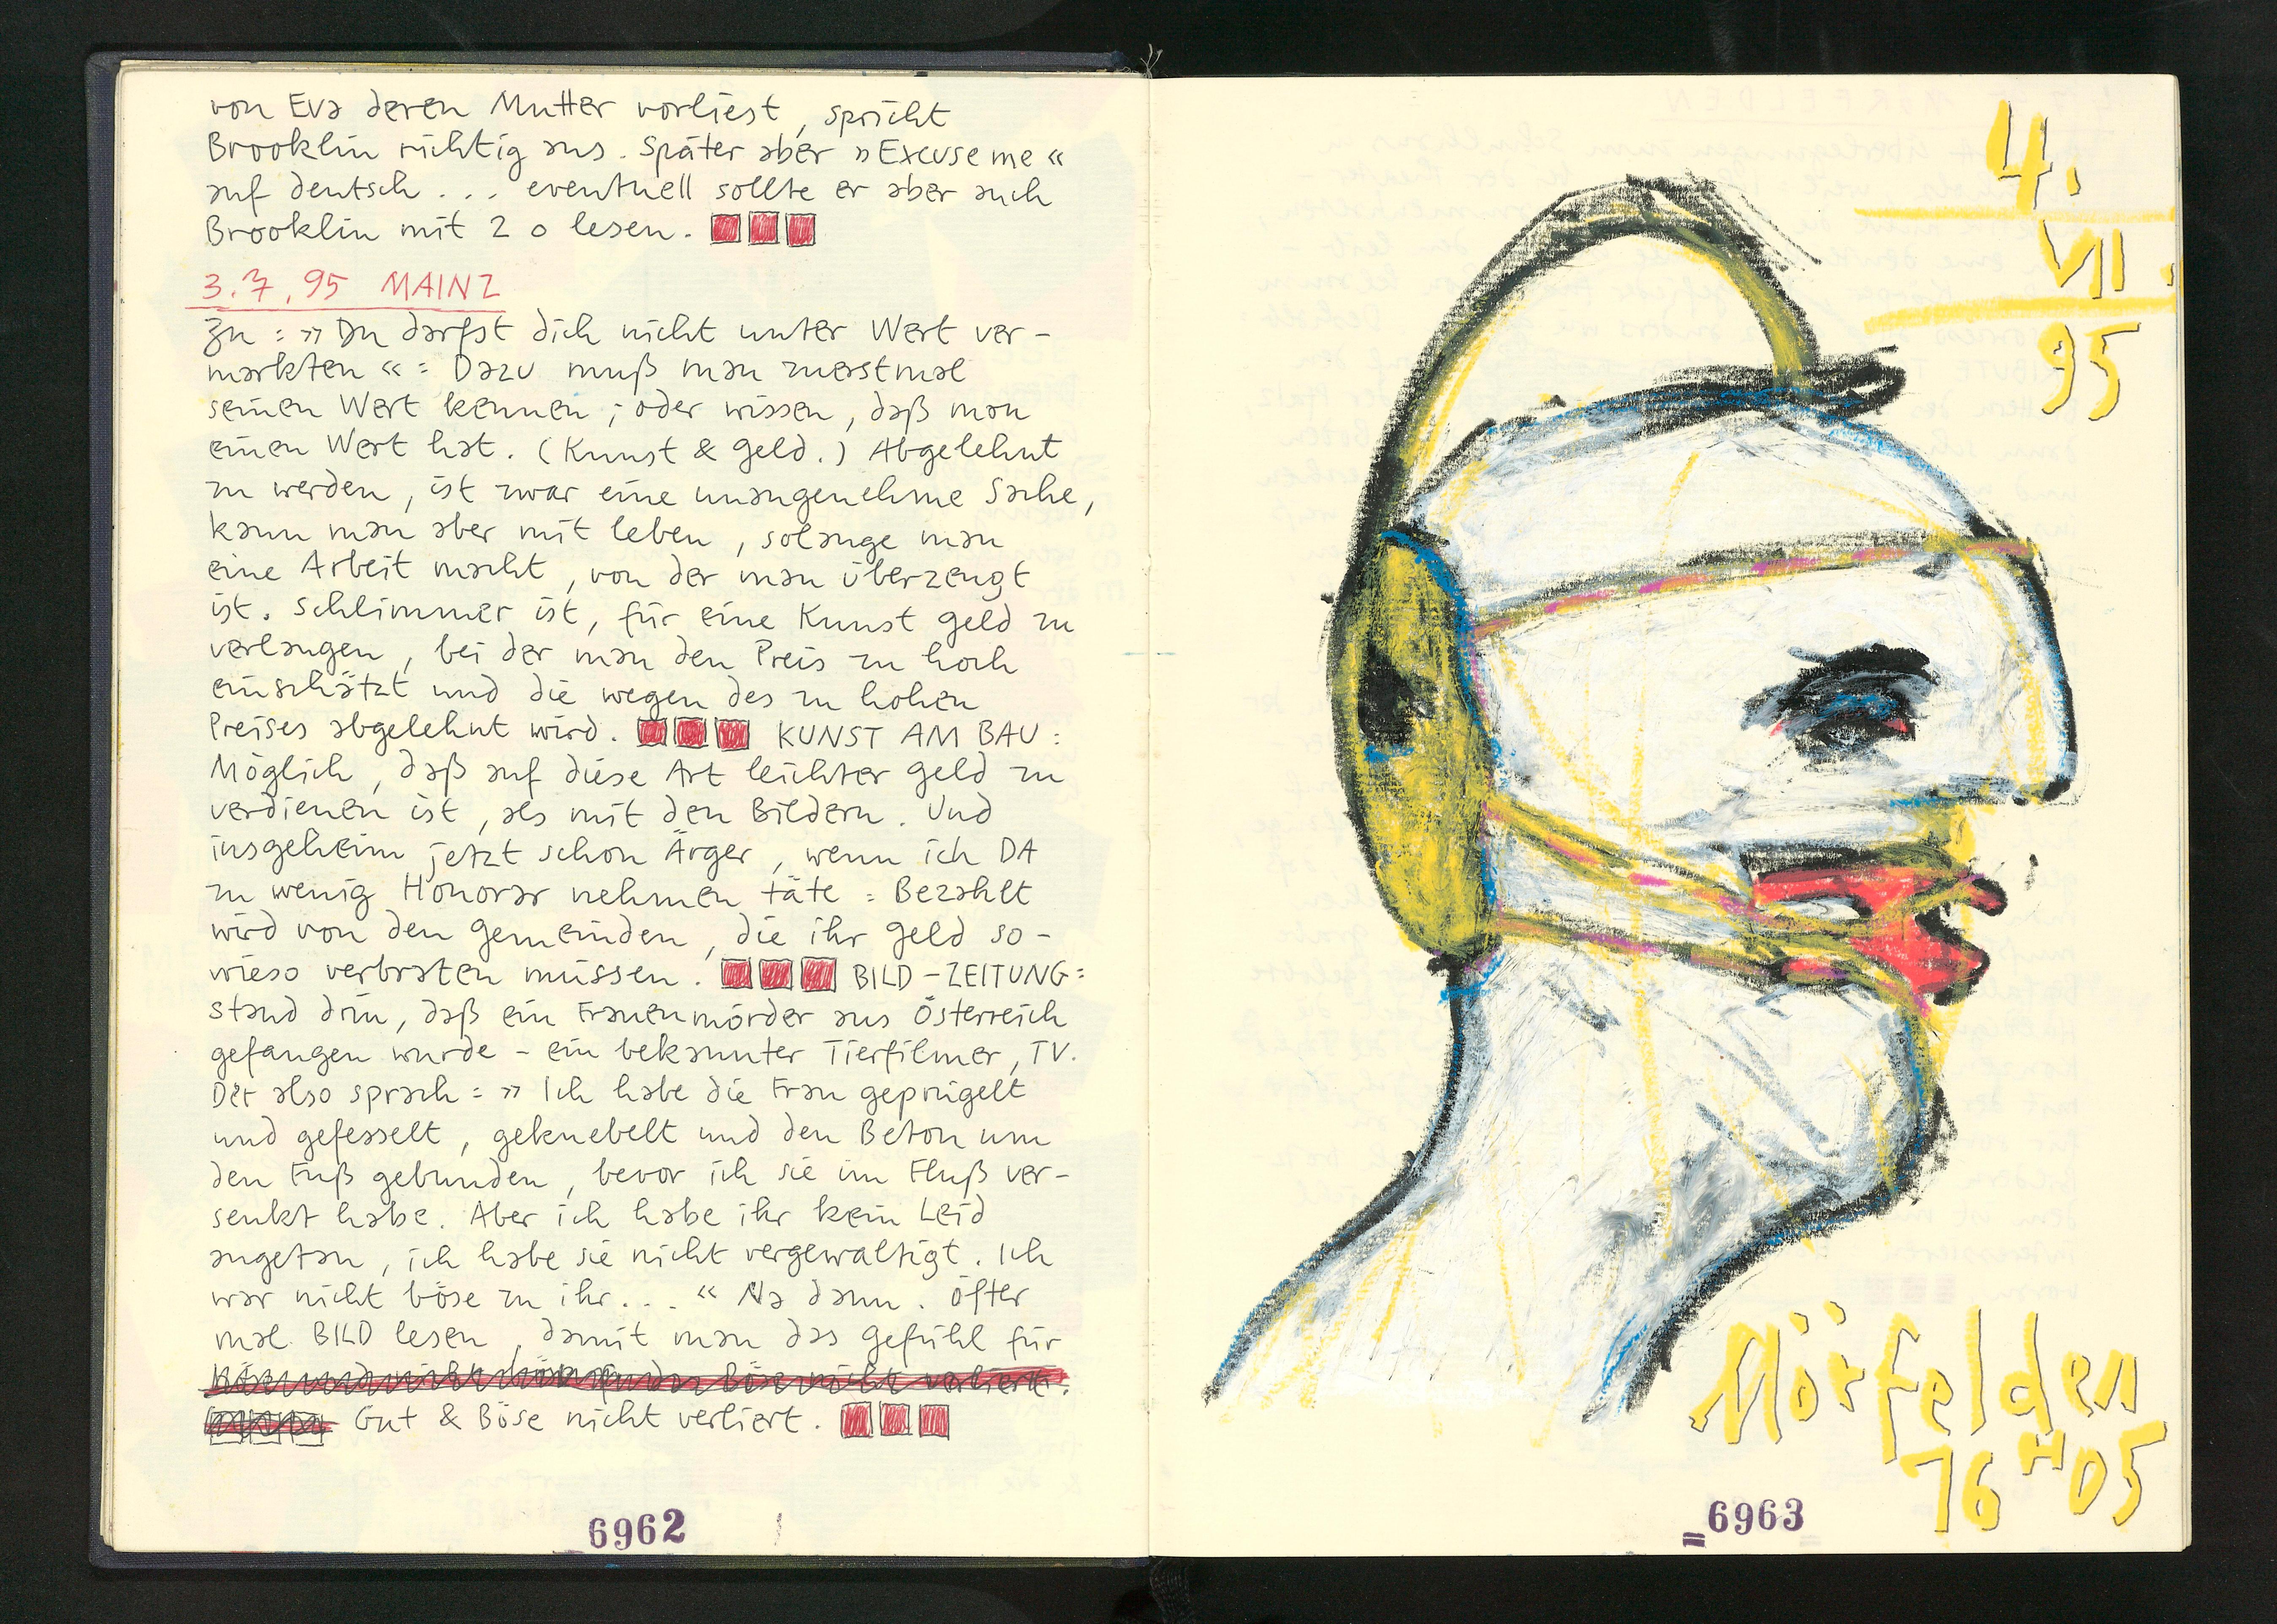 von Eva deren Mutter vorliest, spricht
Brooklin richtig aus. Später aber »Excuse me«
auf deutsch... eventuell sollte er aber auch
Brooklin mit 2 o lesen.
3.7.95 MAINZ
Zu: »Du darfst dich nicht unter Wert ver-
markten«: Dazu muß man zuerstmal
seinen Wert kennen; oder wissen, daß man
einen Wert hat. (Kunst & Geld.) Abgelehnt
zu werden, ist zwar eine unangenehme Sache,
kann man aber mit leben, solange man
eine Arbeit macht, von der man überzeugt
ist. Schlimmer ist, für eine Kunst Geld zu
verlangen, bei der man den Preis zu hoch
einschätzt und die wegen des zu hohen
Preises abgelehnt wird. KUNST AM BAU:
Möglich, daß auf diese Art leichter Geld zu
verdienen ist, als mit den Bildern. Und
insgeheim jetzt schon Ärger, wenn ich DA
zu wenig Honorar nehmen täte: Bezahlt
wird von den Gemeinden, die ihr Geld so-
wieso verbraten müssen. BILD-ZEITUNG:
stand drin, daß ein Frauenmörder aus Österreich
gefangen wurde - ein bekannter Tierfilmer, TV.
Der also sprach: »Ich habe die Frau geprügelt
und gefesselt, geknebelt und den Beton um
den Fuß gebunden, bevor ich sie im Fluß ver-
senkt habe. Aber ich habe ihr kein Leid
angetan, ich habe sie nicht vergewaltigt. Ich
war nicht böse zu ihr...« Na dann. Öfter
mal BILD lesen, damit man das Gefühl für
Gut & Böse nicht verliert.
6962
4.
VII.
95
Mörfelden
16 H 05
6963